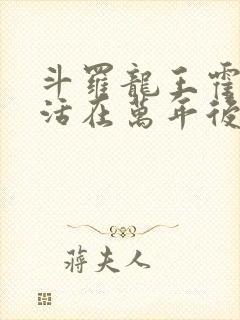 斗羅龍王霍
活在萬年後
蔣夫人